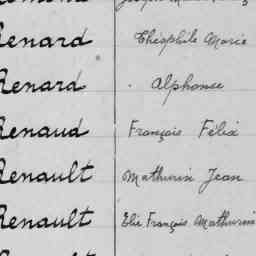 Renard Théophile Marie
Renard Alphonse
Renaud François Félix
Renault Mathurin Jean
Renault Elie François Mathurin